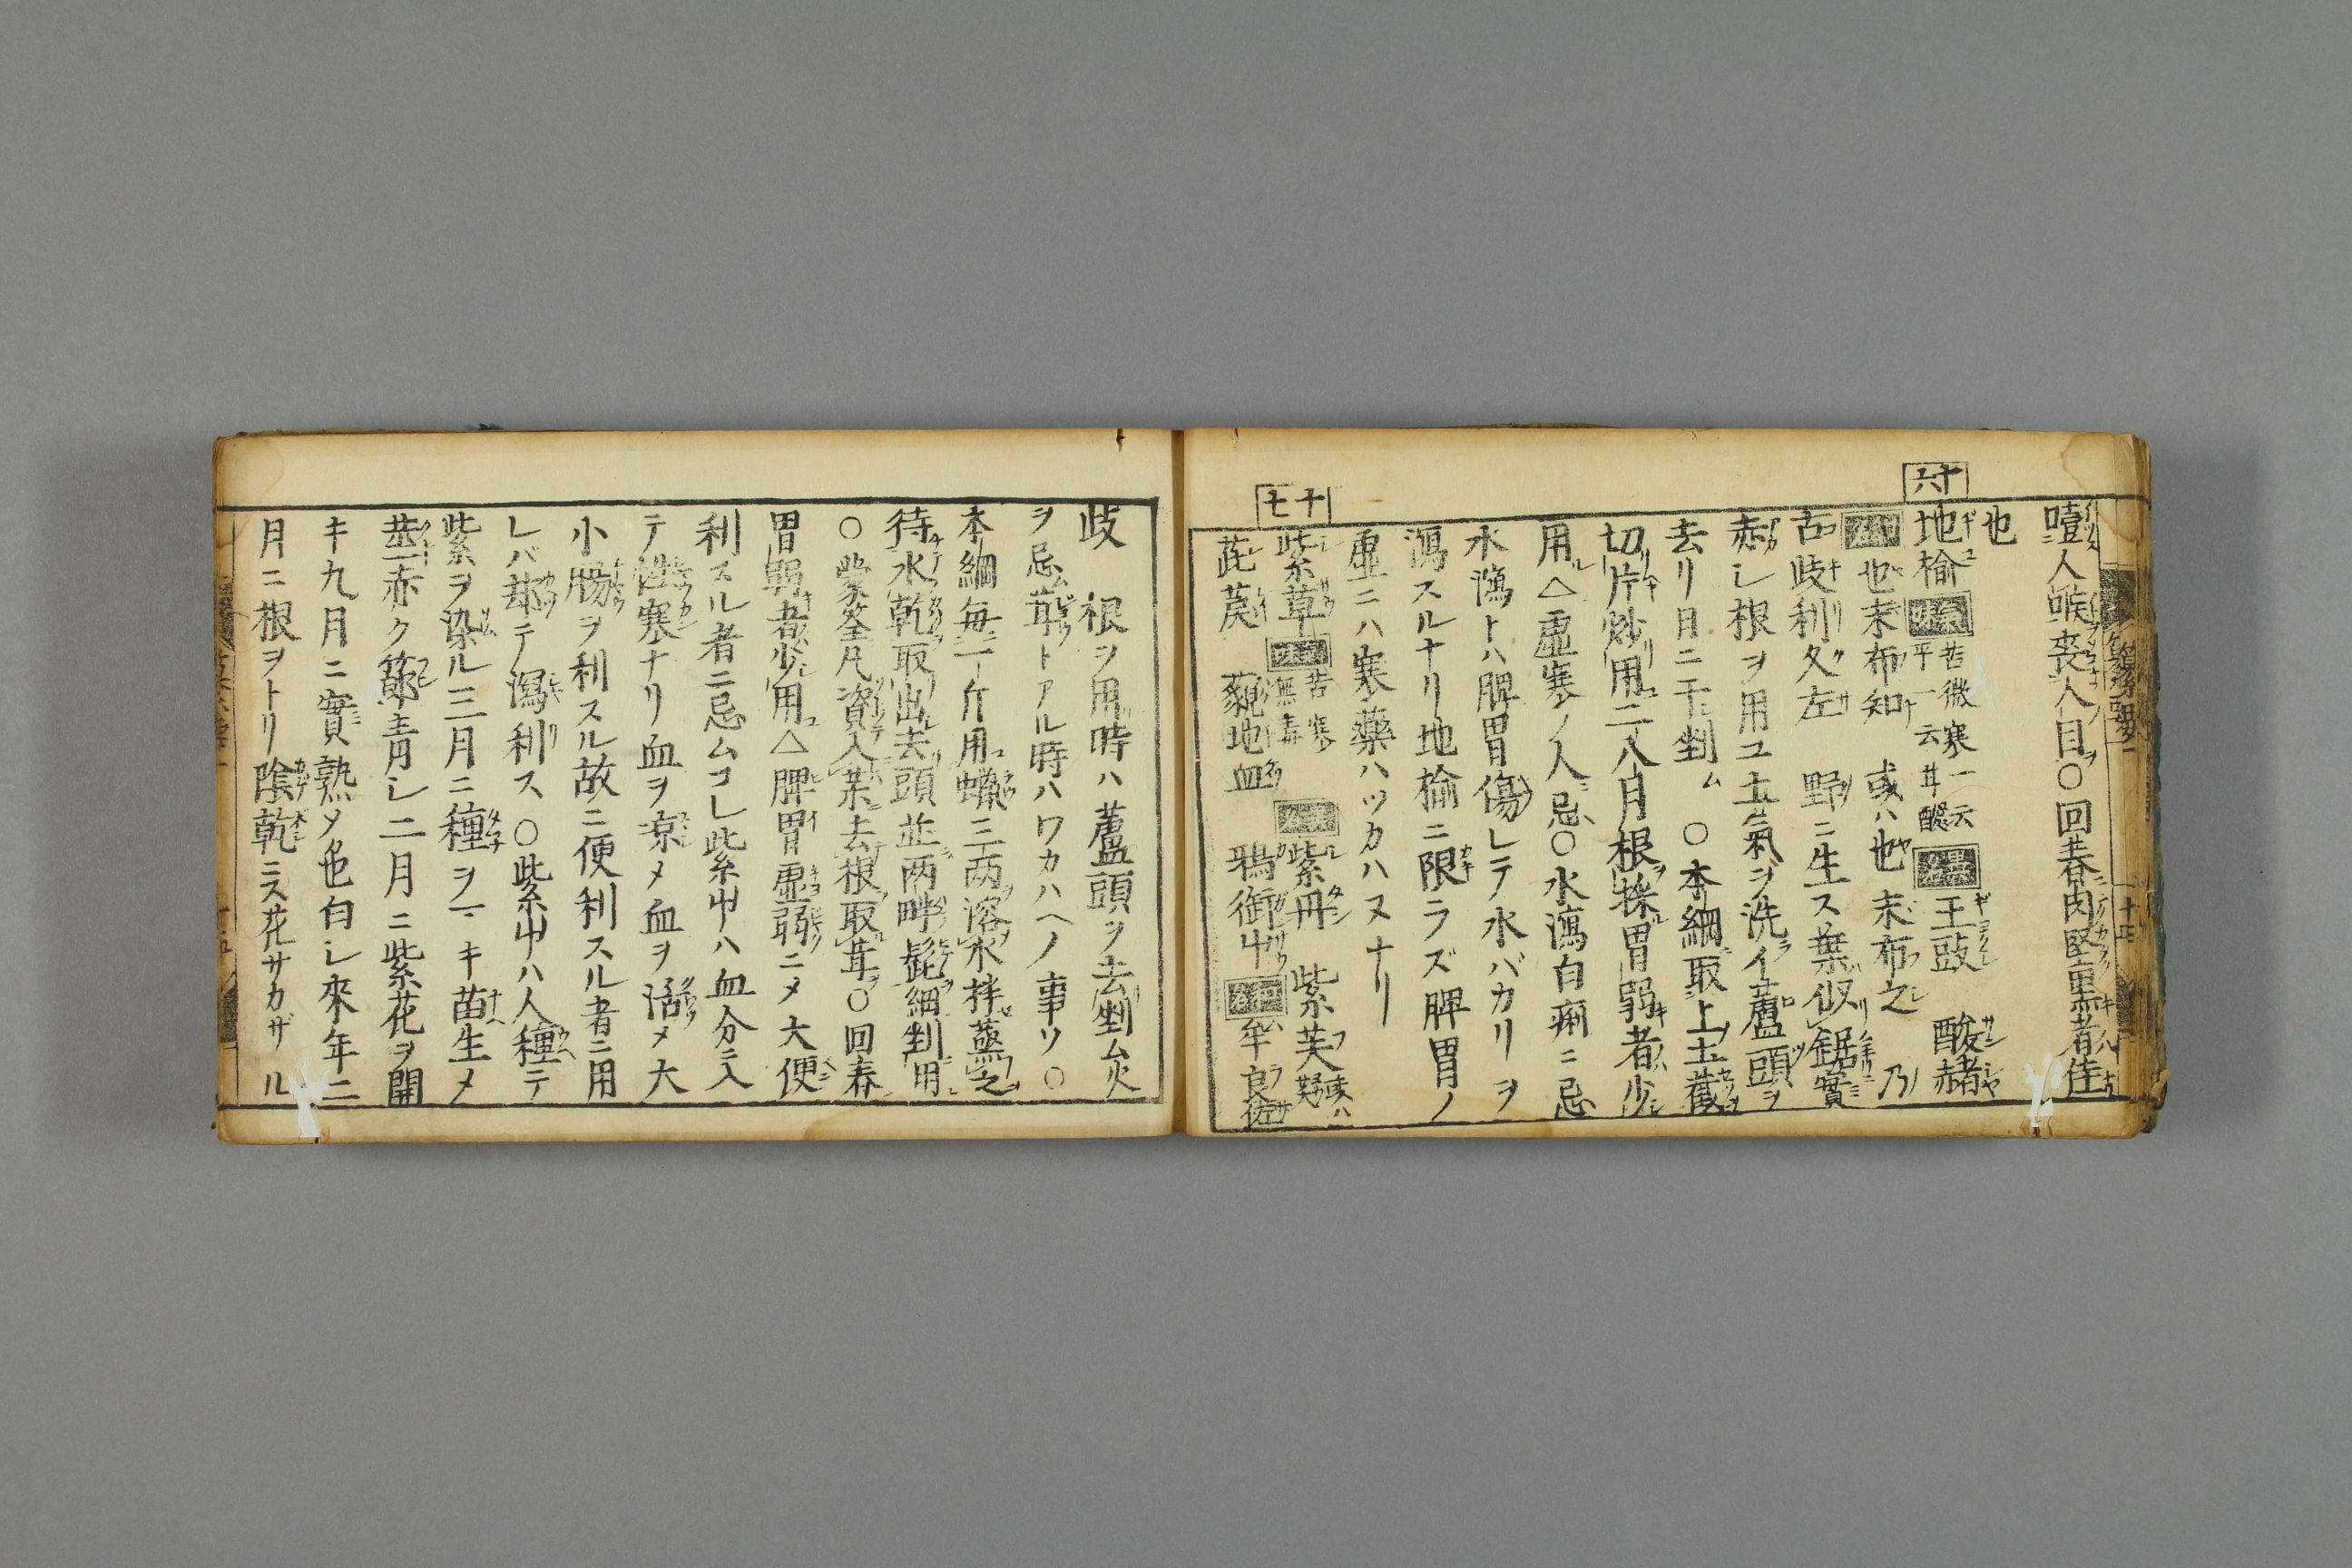 噎人喉喪人目○回春肉堅黒者佳
也
十六
地楡 苦微寒一云平一云甘酸 王豉 酸赭
也末布知 或ハ也末布之 乃
古岐利久左 野ニ生ス葉似鋸實
赤シ根ヲ用ユ土氣ヲ洗イ蘆頭ヲ
去リ日ニ干剉ム ○本綱取上土截
切片炒用二八月根採胃弱者少
用△虚寒ノ人忌○水瀉白痢ニ忌
水瀉トハ脾胃傷レテ水バカリヲ
瀉スルナリ地楡ニ限ラズ脾胃ノ
虚ニハ寒藥ハツカハヌナリ
十七
紫草 苦寒無毒 紫丹 紫芺
茈䓞 藐 地血 鴉銜艸 牟良佐
岐 根ヲ用時ハ蘆頭ヲ去剉ム火
ヲ忌トアル時ハワカハヘノ事ソ○
本綱毎一斤用蠟三两溶水拌蒸之
待水乾取出去頭並两畔髭細剉用
○蒙筌凡資入藥去根取茸○回春
胃弱者少用△脾胃虚弱ニメ大便
利スル者ニ忌ムコレ紫艸ハ血分ニ入
テ性寒ナリ血ヲ凉メ血ヲ活メ大
小腸ヲ利スル故ニ便利スル者ニ用
レバ却テ瀉利ス ○紫艸ハ人種テ
紫ヲ染ル三月ニ種ヲマキ苗生メ
莖赤ク節青シ二月ニ紫花ヲ開
キ九月ニ實熟メ色白シ來年二
月ニ根ヲトリ陰乾ニス花サカザル